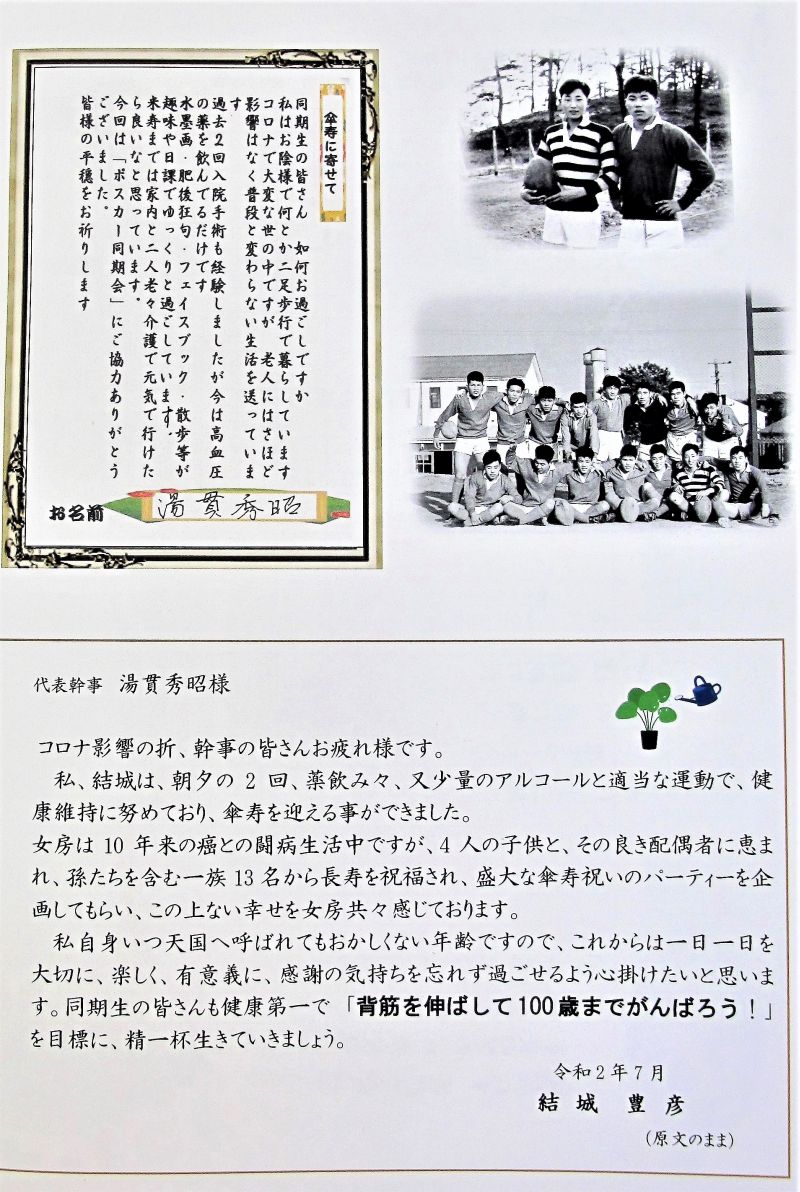 傘寿に寄せて
同期生の皆さん　如何お過ごしですか
私はお陰様で何とか二足歩行で暮らしています
コロナで大変な世の中ですが　老人にはさほど
影響はなく普段と変わらない生活を送っていま
す
過去２回入院手術も経験しましたが今は高血圧
の薬を飲んでるだけです
水墨画・肥後狂句・フェイスブック・散歩等が
趣味や日課でゆっくりと過ごしています．
米寿までは家内と二人老々介護で元気で行けた
ら良いなと思っています．
今回は「ポスカー同期会」にご協力ありがとう
ございました。
皆様の平穏をお祈りします
お名前 湯貫秀昭
代表幹事 湯貫秀昭様
コロナ影響の折、幹事の皆さんお疲れ様です。
私、結城は、朝夕の 2 回、薬飲み々、又少量のアルコールと適当な運動で、健
康維持に努めており、傘寿を迎える事ができました。
女房は 10 年来の癌との闘病生活中ですが、4 人の子供と、その良き配偶者に恵ま
れ、孫たちを含む一族 13 名から長寿を祝福され、盛大な傘寿祝いのパーティーを企
画してもらい、この上ない幸せを女房共々感じております。
私自身いつ天国へ呼ばれてもおかしくない年齢ですので、これからは一日一日を
大切に、楽しく、有意義に、感謝の気持ちを忘れず過ごせるよう心掛けたいと思いま
す。同期生の皆さんも健康第一で 「背筋を伸ばして100歳までがんばろう！」
を目標に、精一杯生きていきましょう。
令和２年７月
結城 豊彦
（原文のまま）